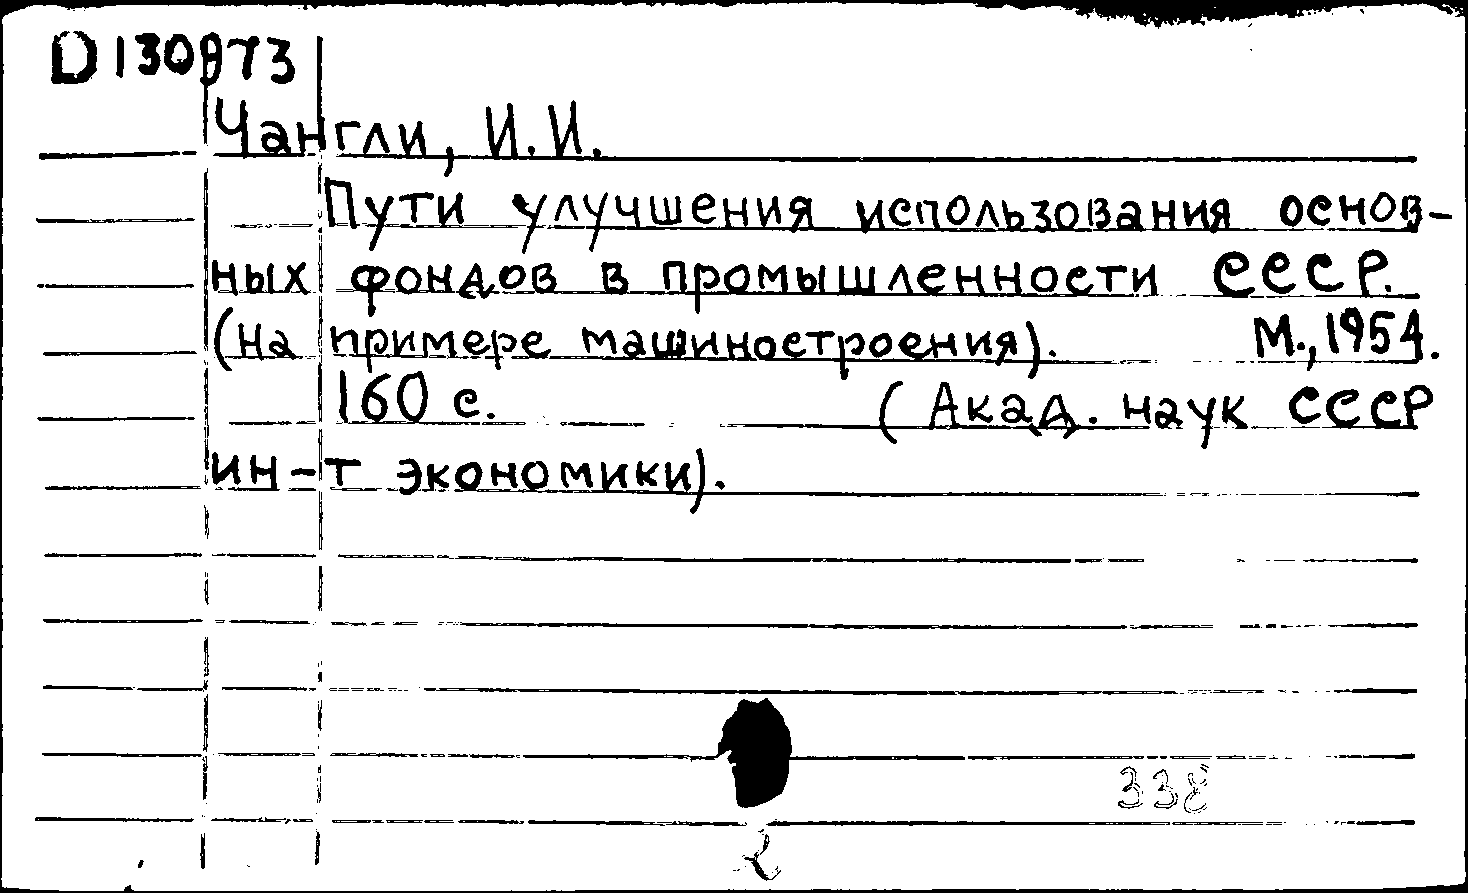 D130973
Чангли, И.И.
Пути улучшения использования основ-
ных фондов в промышленности СССР.
(На примере машиностроения). М., 1954.
160 с. (Акад. наук СССР
ин-т экономики).
338
2